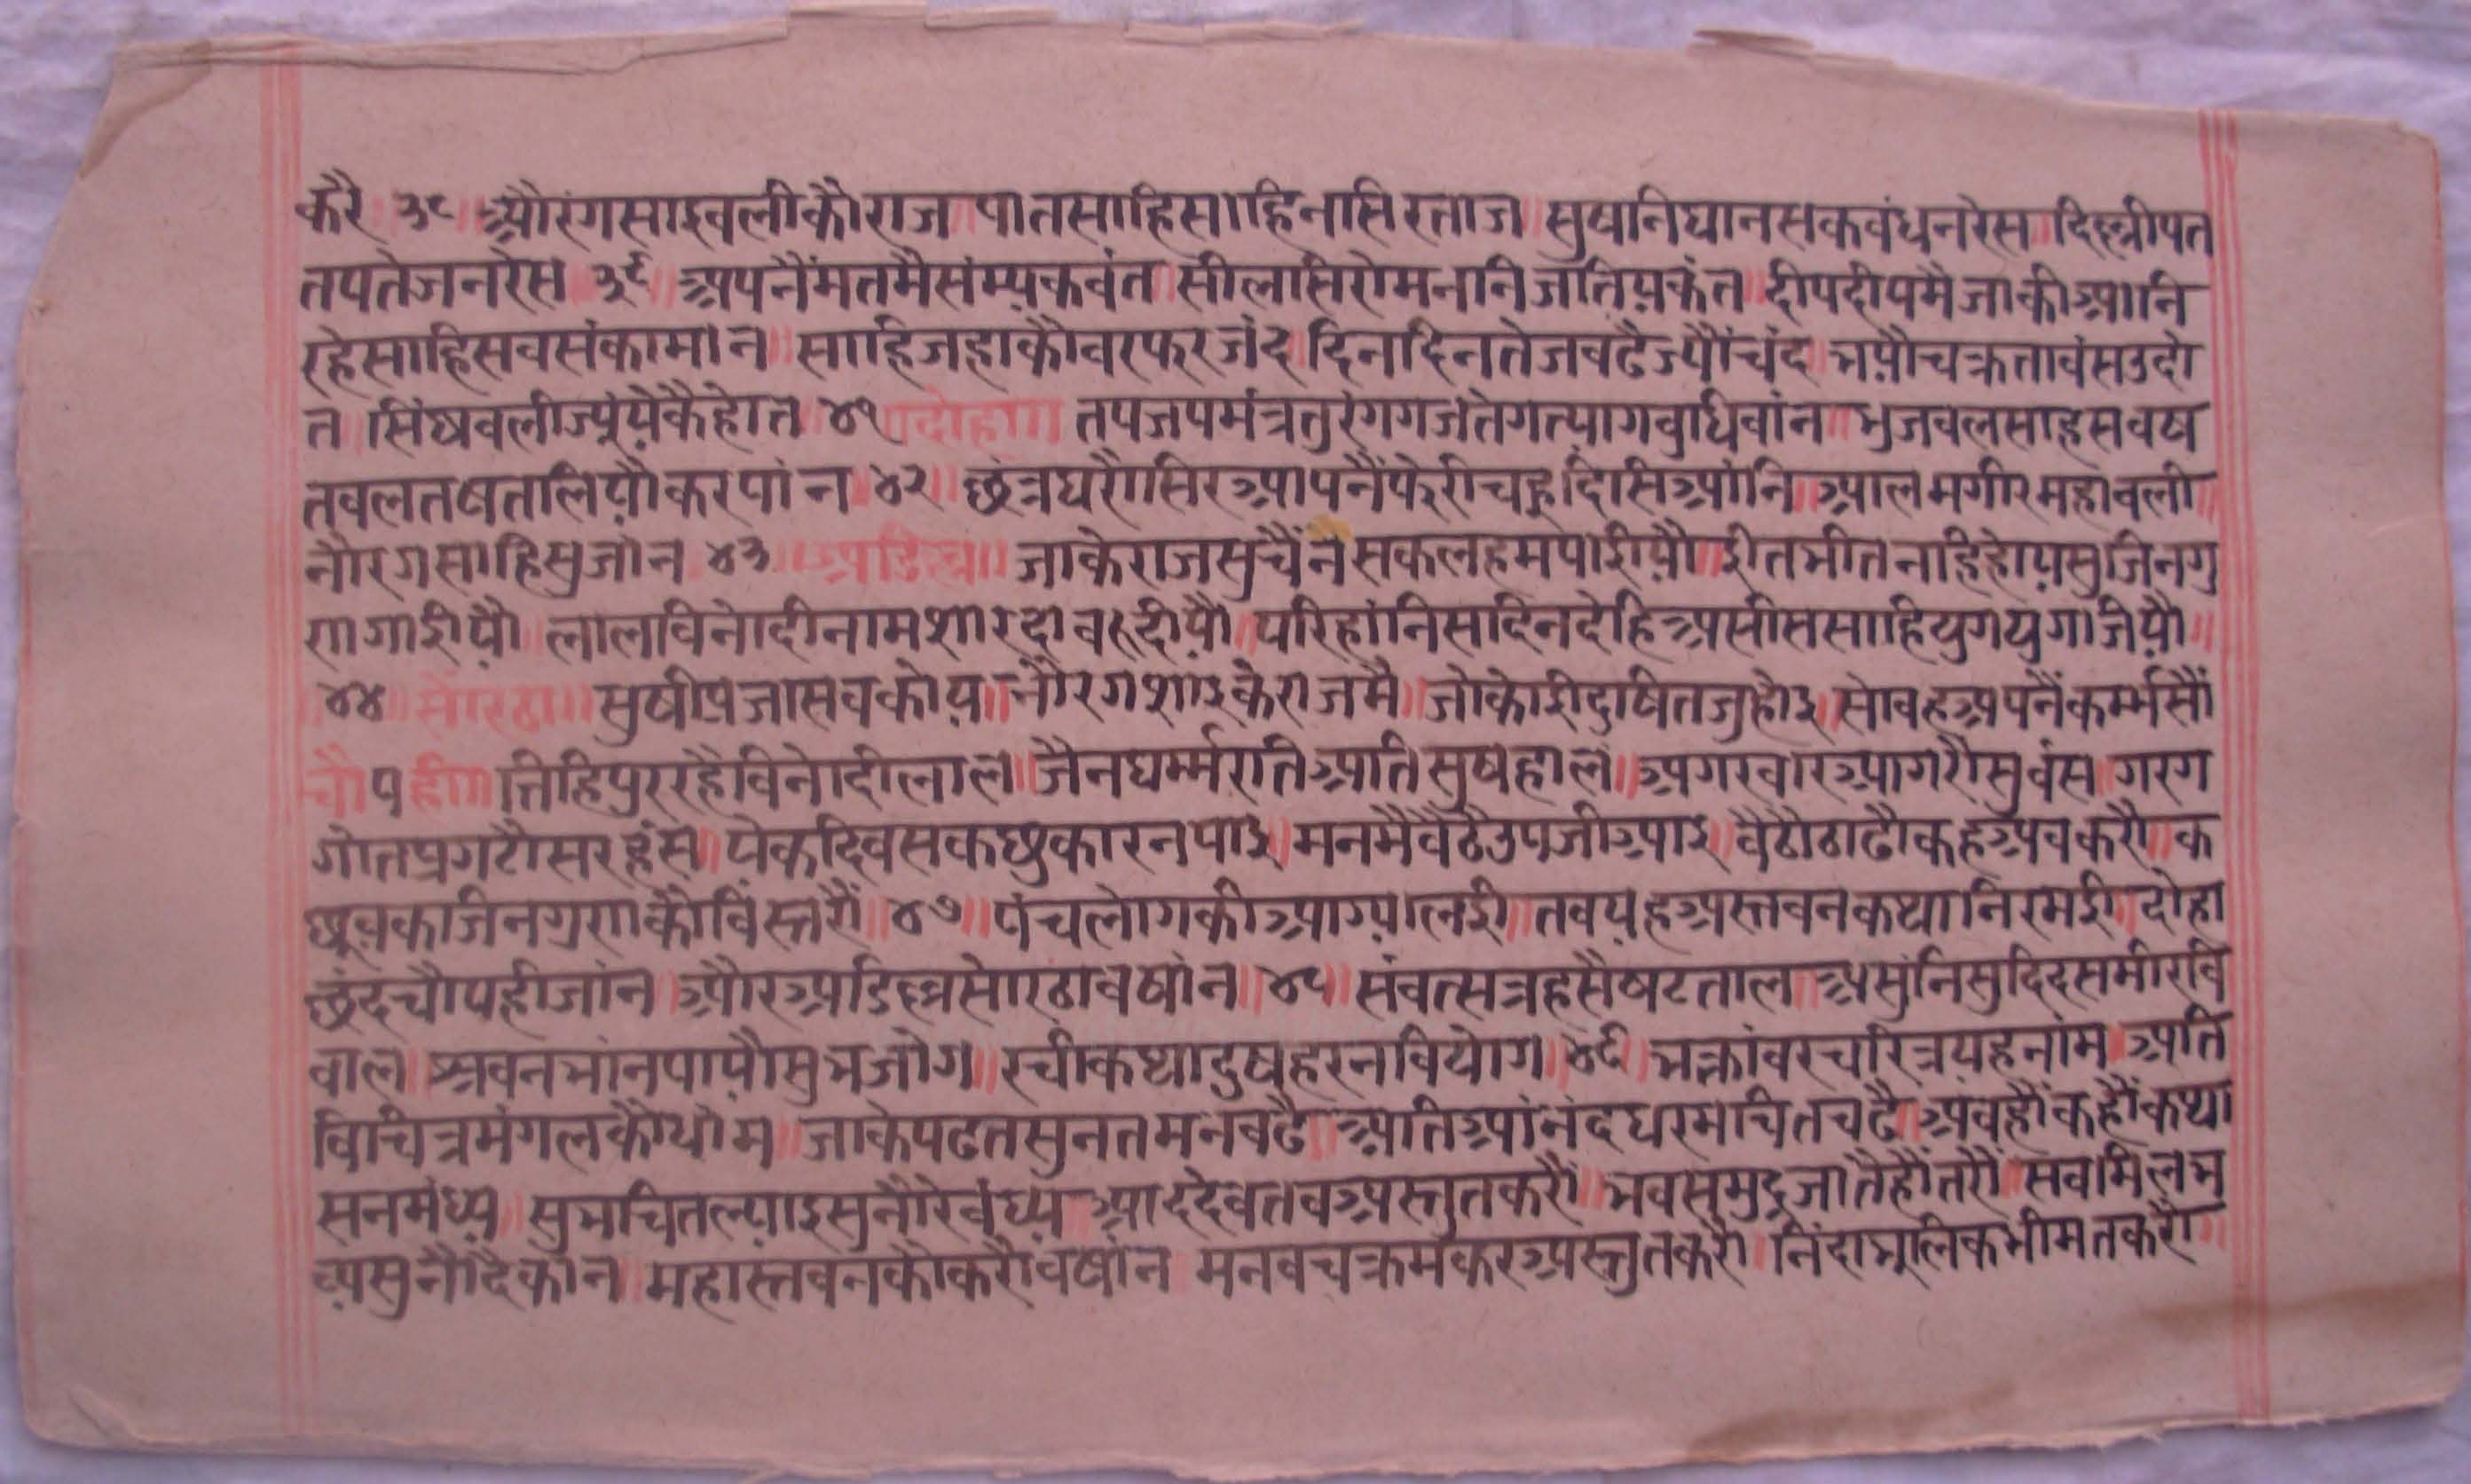 करै ३८ ॥ औरंगसाइवलीकौराज ॥ पातसाहिसाहिनासिरताज ॥ सुषनिधानसकवंधनरेस ॥ दिल्लीपत
तपतेजनरेस ३९ ॥ अपनैंमतमैसंम्यकवंत ॥ सीलसिरोमननिजतियकंत ॥ दीपदीपमै जाकीआनि
रहेसाहिसवसंकामांन ॥ साहिजहाकौवरफरजंद ॥ दिनदिनतेजवढैज्यौंचंद ॥ भयौचक्रतावंसउदो
त ॥ सिंघवलीज्यूंयैकैहोत ४१ ॥ दोहा ॥ तपजपमंत्रतुरंगगजतेगत्यागवुधिवांन ॥ भुजवलसाहसवष
तवलतषतलियौकरपांन ४२ ॥ छंत्रधरौसिरआपनैंफेरीचहुदिसिआंनि ॥ आलमगीरमहावली ॥
नौरगसाहिसुजांन ४३ ॥ अडिल्ल ॥ जाकेराजसुचैंनसकलहमपाईयौ ॥ ईतभीतनाहिहोयसुजिनगु
णगाईयौ ॥ लालविनोदीनामशारदावरुदीयौ ॥ परिहांनिसदिनदेहिअसीससाहियुगयुगजियौ ॥
४४ ॥ सोरठा ॥ सुषीप्रजासवकोय ॥ नौरगशाइकेराजमै ॥ जोकोईदुषितजुहोइ ॥ सोवहअपनैंकर्म्मसौं
चौपही ॥ तिहिपुररहैविनोदीलाल ॥ जैनधर्म्मरातिअतिसुषहाल ॥ अगरवारआगरौसुवंस ॥ गरग
गोतप्रगटौसरहंस ॥ येकदिवसकछुकारनपाइ ॥ मनमैवैठैउपजीआइ ॥ वैठौठाढौकहअवकरौ ॥ क
छूवकाजिनग्रणकौविंस्तरौं ॥ ४७ ॥ पंचलोगकीआग्यालई ॥ तवयहअस्तवनकथानिरमई ॥ दोहा
छंदचौपहीजांन ॥ औरअडिल्लसोरठावषांन ॥ ४८ ॥ संवत्सत्रहसैषटताल ॥ असुनिसुदिदसमीरवि
वाल ॥ श्रवनभांनपायौसुभजोग ॥ रचीकथादुषहरनवियोग ॥ ४९ ॥ भक्तांवरचरित्रयहनांम ॥ अति
विचित्रमंगलकौधांम ॥ जाकेपढतसुनतमनवढै ॥ अतिआंनंदधरमचितचढै ॥ अवहौंकहौंकथा
सनमंध्य ॥ सुभचितल्याइसुनौरेवंध्य ॥ आददेवतवअस्तुतकरौं ॥ भवसमुद्रजातैहौंतरौं ॥ सवमिलभ
व्यसुनौदैकांन ॥ महास्तवनकौकरौवषांन ॥ मनवचक्रमकरअस्तुतकरौ ॥ निंदाभूलिकभीमतकरौ ॥